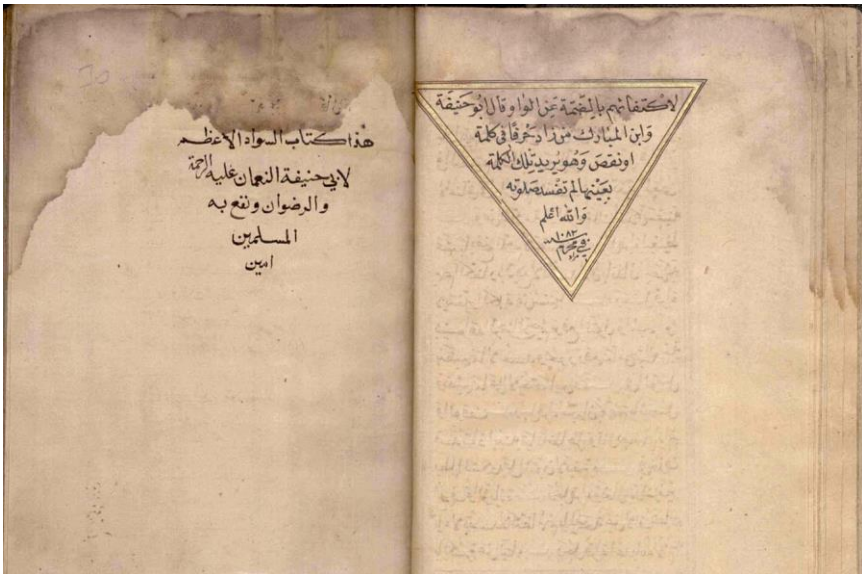 لاكتفائهم بالضمة عن الواو وقال ابو حنيفة
وابن المبارك من زاد حرفا في كلمة
او نقص وهو يريد تلك الكلمة
بعينها لم تفسد صلوته
والله اعلم
١٠٨٣
في محرم
هذا كتاب السواد الاعظم
لابي حنيفة النعمان عليه الرحمة
والرضوان ونفع به
المسلمين
امين